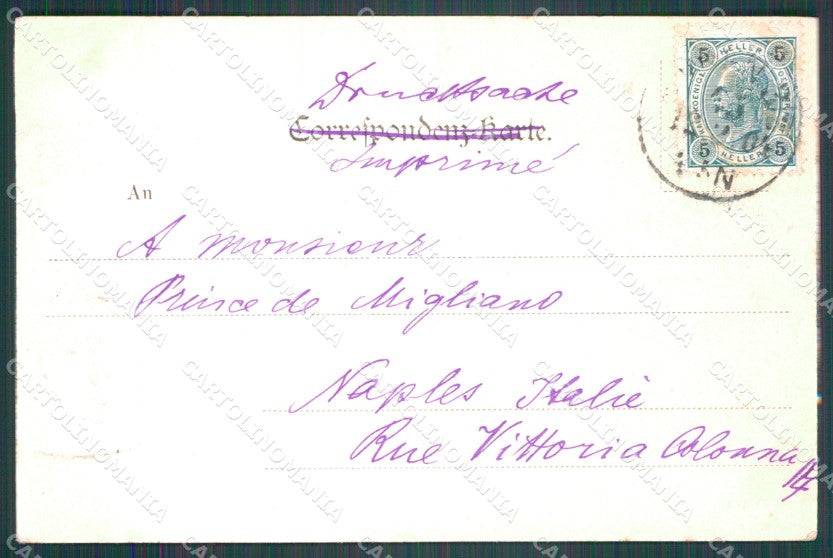 Drucksache
Correspondenz-Karte.
Imprimé
An
A monsieur
Prince de Migliano
Naples Italie
Rue Vittoria Colonna
14
5 HELLER 5
5 HELLER 5
CARTOLINOMANIA